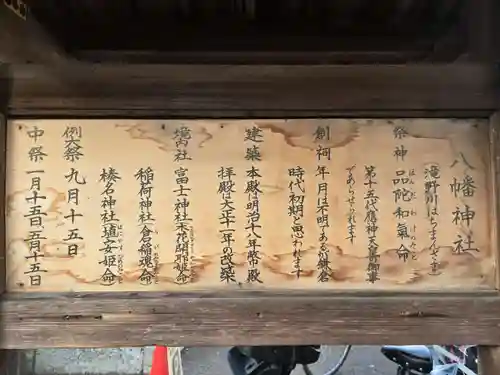 八幡神社
(滝野川はちまんさまです)
祭神 品陀和氣命
ほんだわけのみこと
第十五代應神天皇御事
であらせられます
創祠 年月は不明であるが鎌倉
時代初期と思われます
建築 本殿は明治十八年幣殿
拝殿は大正十一年の改築
境内社 富士神社木花咲耶姫命
稲荷神社倉稲魂命
榛名神社埴安姫命
例大祭 九月十五日
中祭 一月十五日五月十五日